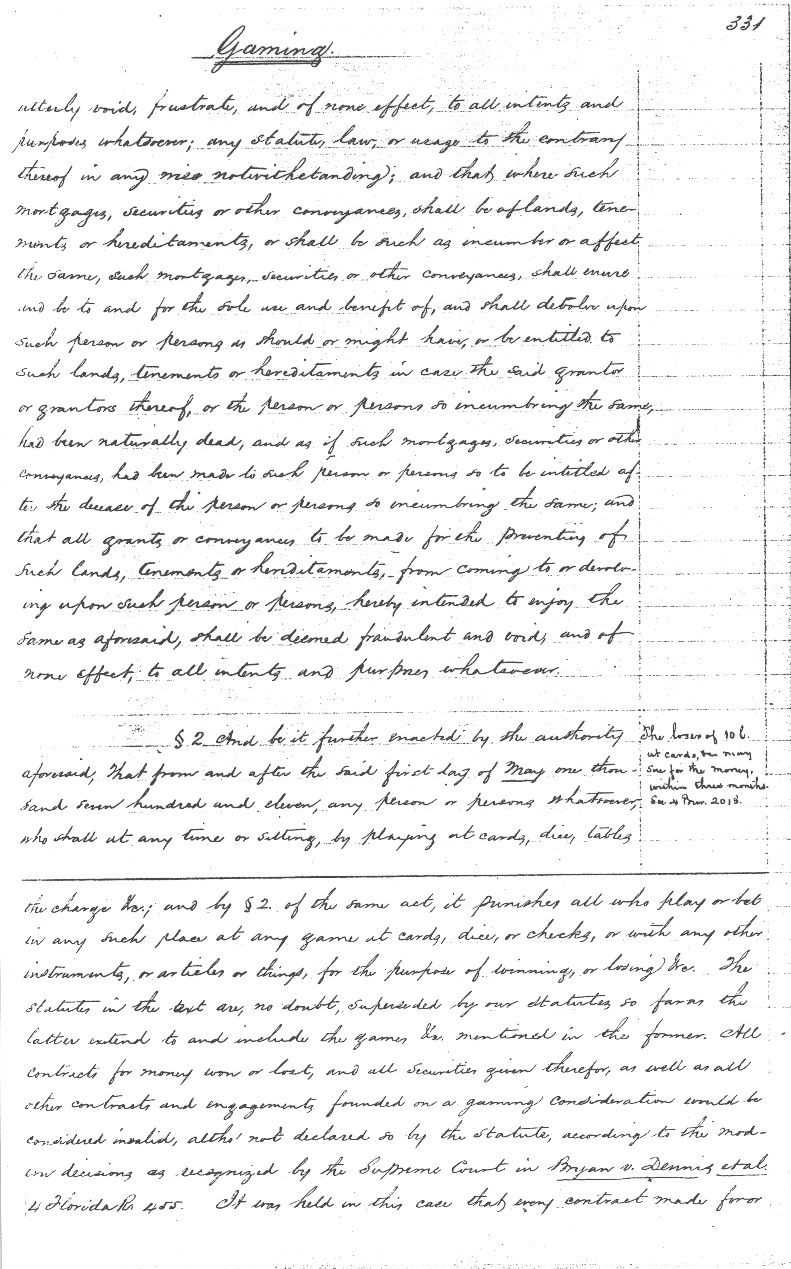 331
Gaming.
utterly void, frustrate, and of none effect, to all intents and
purposes whatsoever; any statute, law, or usage to the contrary
thereof in any wise notwithstanding; and that, where such
mortgages, securities or other conveyances, shall be of lands, tene-
ments or hereditaments, or shall be such as incumber or affect
the same, such mortgages, securities or other conveyances, shall enure
and be to and for the sole use and benefit of, and shall devolve upon
such person or persons as should or might have, or be entitled to
such lands, tenements or hereditaments in case the said grantor
or grantors thereof, or the person or persons so incumbring the same,
had been naturally dead, and as if such mortgages, securities or other
conveyances, had been made to such person or persons so to be intitled af-
ter the decease of the person or persons so incumbring the same; and
that all grants or conveyances to be made for the preventing of
such lands, tenements or hereditaments, from coming to or devolv-
ing upon such person or persons, hereby intended to enjoy the
same as aforesaid, shall be deemed fraudulent and void, and of
none effect, to all intents and purposes whatsoever.
§ 2 And be it further enacted by the authority
aforesaid, That from and after the said first day of May one thou-
sand seven hundred and eleven, any person or persons whatsoever,
who shall at any time or sitting, by playing at cards, dice, tables
The loser of 10 £.
at cards, &c may
sue for the money,
within three months.
See 4 Burr. 2018.
the charge &c.; and by § 2. of the same act, it punishes all who play or bet
in any such place at any game at cards, dice, or checks, or with any other
instruments, or articles or things, for the purpose of winning, or losing &c. The
statutes in the text are, no doubt, superseded by our statutes so far as the
latter extend to and include the games &c. mentioned in the former. All
contracts for money won or lost, and all securities given therefor, as well as all
other contracts and engagements founded on a gaming consideration would be
considered invalid, altho' not declared so by the statute, according to the mod-
ern decisions as recognized by the Supreme Court in Bryan v. Dennis et al.
4 Florida R. 455. It was held in this case that every contract made for or